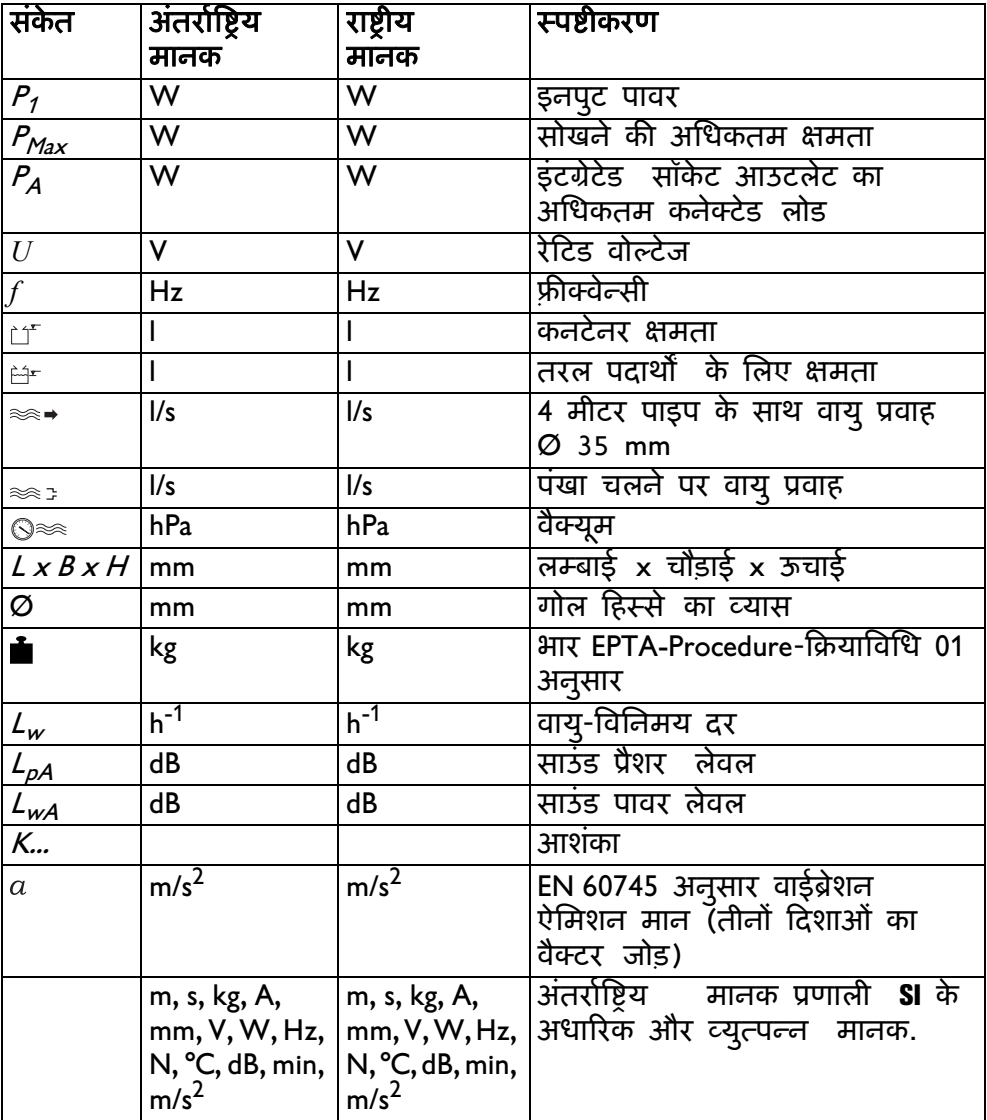 संकेत अंतर्राष्ट्रिय राष्ट्रीय स्पष्टीकरण
मानक मानक
P1 W W इनपुट पावर
PMax W W सोखने की अधिकतम क्षमता
PA W W इंटग्रेटेड सॉकेट आउटलेट का
अधिकतम कनेक्टेड लोड
U V V रेटिड वोल्टेज
f Hz Hz फ़्रीक्वेन्सी
l l कनटेनर क्षमता
l l तरल पदार्थों के लिए क्षमता
l/s l/s 4 मीटर पाइप के साथ वायु प्रवाह
Ø 35 mm
l/s l/s पंखा चलने पर वायु प्रवाह
hPa hPa वैक्यूम
L x B x H mm mm लम्बाई x चौड़ाई x ऊचाई
Ø mm mm गोल हिस्से का व्यास
kg kg भार EPTA-Procedure-क्रियाविधि 01
अनुसार
Lw h-1 h-1 वायु-विनिमय दर
LpA dB dB साउंड प्रैशर लेवल
LwA dB dB साउंड पावर लेवल
K... आशंका
a m/s2 m/s2 EN 60745 अनुसार वाईब्रेशन
ऐमिशन मान (तीनों दिशाओं का
वैक्टर जोड़)
m, s, kg, A, m, s, kg, A, अंतर्राष्ट्रिय मानक प्रणाली SI के
mm, V, W, Hz, mm, V, W, Hz, अधारिक और व्युत्पन्न मानक.
N, °C, dB, min, N, °C, dB, min,
m/s2 m/s2